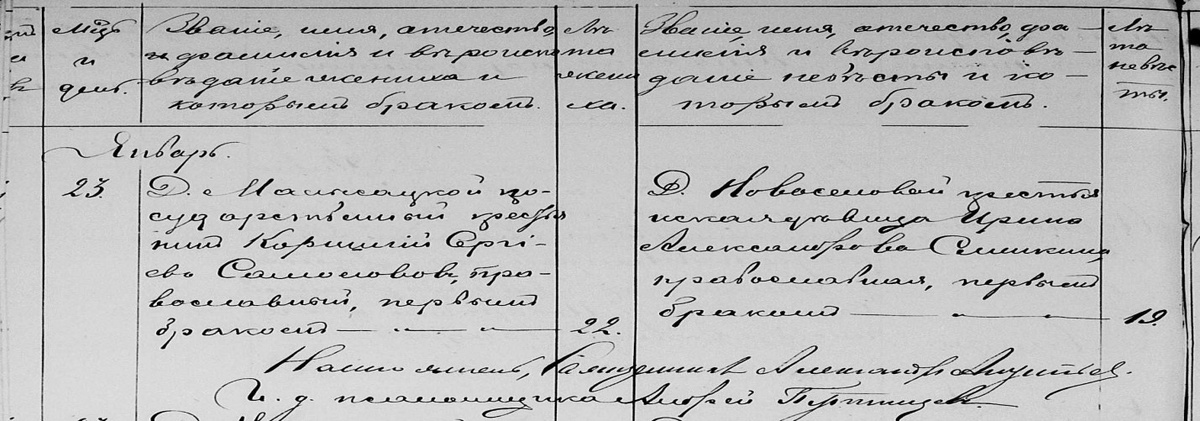 Мѣсяцъ и день.
Званіе, имя, отечество,
и фамилія и вѣроиспо-
вѣданіе жениха и
которымъ бракомъ.
Лѣ-
та
жени
ха.
Званіе имя, отечество, фа-
милія и вѣроисповѣ-
даніе невѣсты и ко-
торымъ бракомъ.
Лѣ-
та
невѣс
ты.
Январь.
23.
Д. го-
сударственный кресть
нинъ Сергі-
евъ пра-
вославный, первымъ
бракомъ — „ — „ —
22.
Д. Новоселовой кресть
нская дѣвица Ирина
Александрова
православная, первымъ
бракомъ — „ — „ —
19.
Настоятель, Священникъ Александръ
И. д. псаломщика Андрей